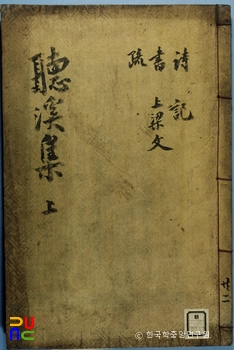 聽溪集 上
詩 記
書 上梁文
疏
廿二
© 한국학중앙연구원